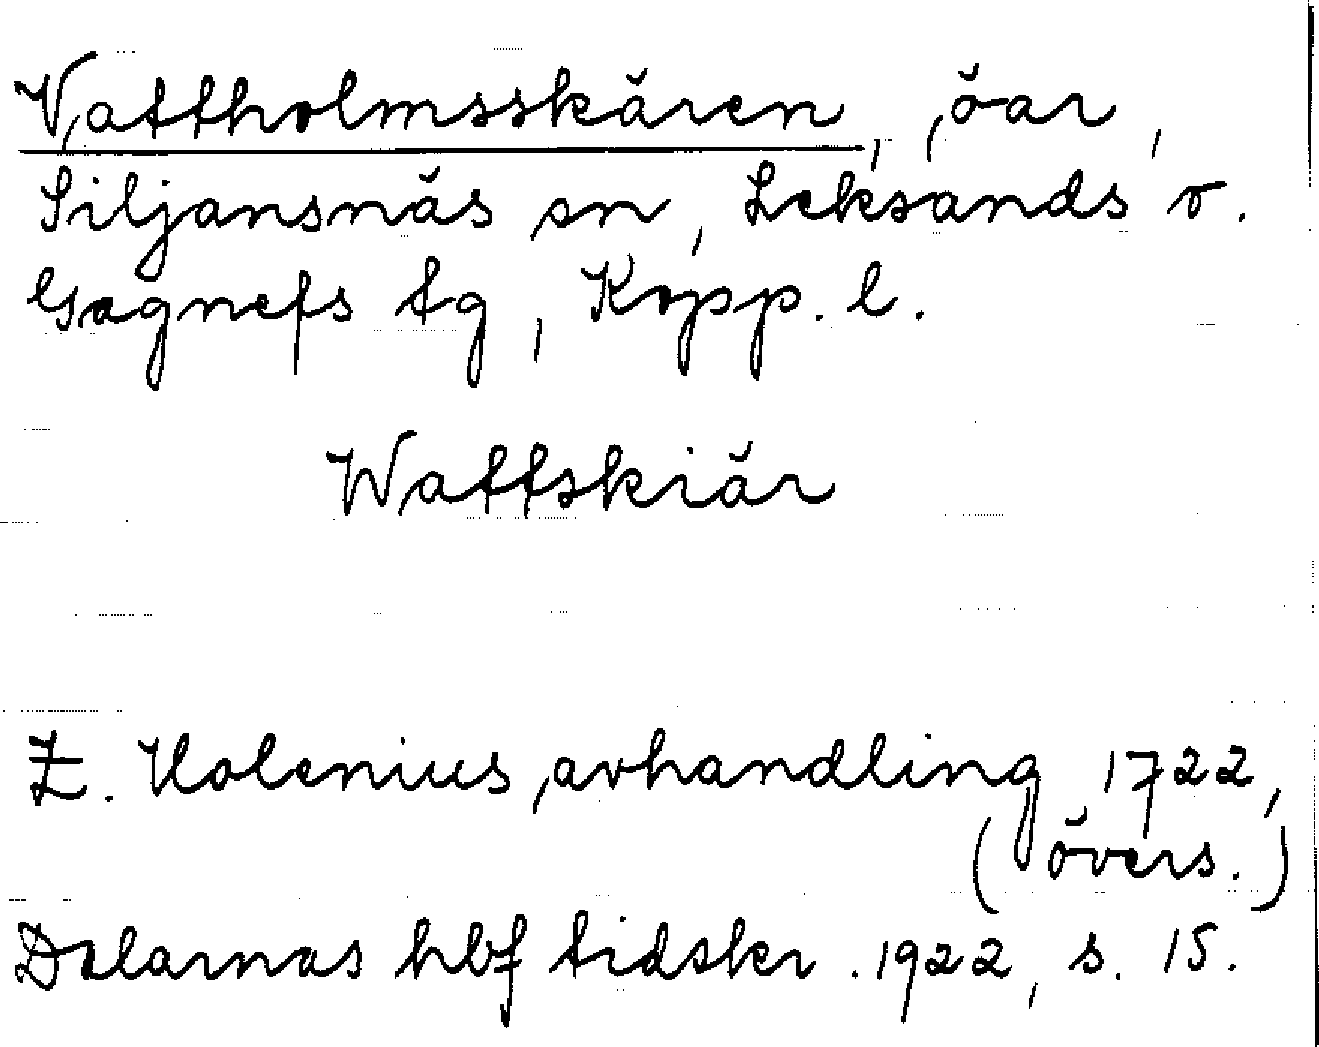 Vattholmsskären, öar,
Siljansnäs sn, Leksands o.
Gagnefs tg, Kopp. l.
Wattskiär
Z. Holenius avhandling 1722,
(övers.)
Dalarnas hbf tidskr. 1922, s. 15.